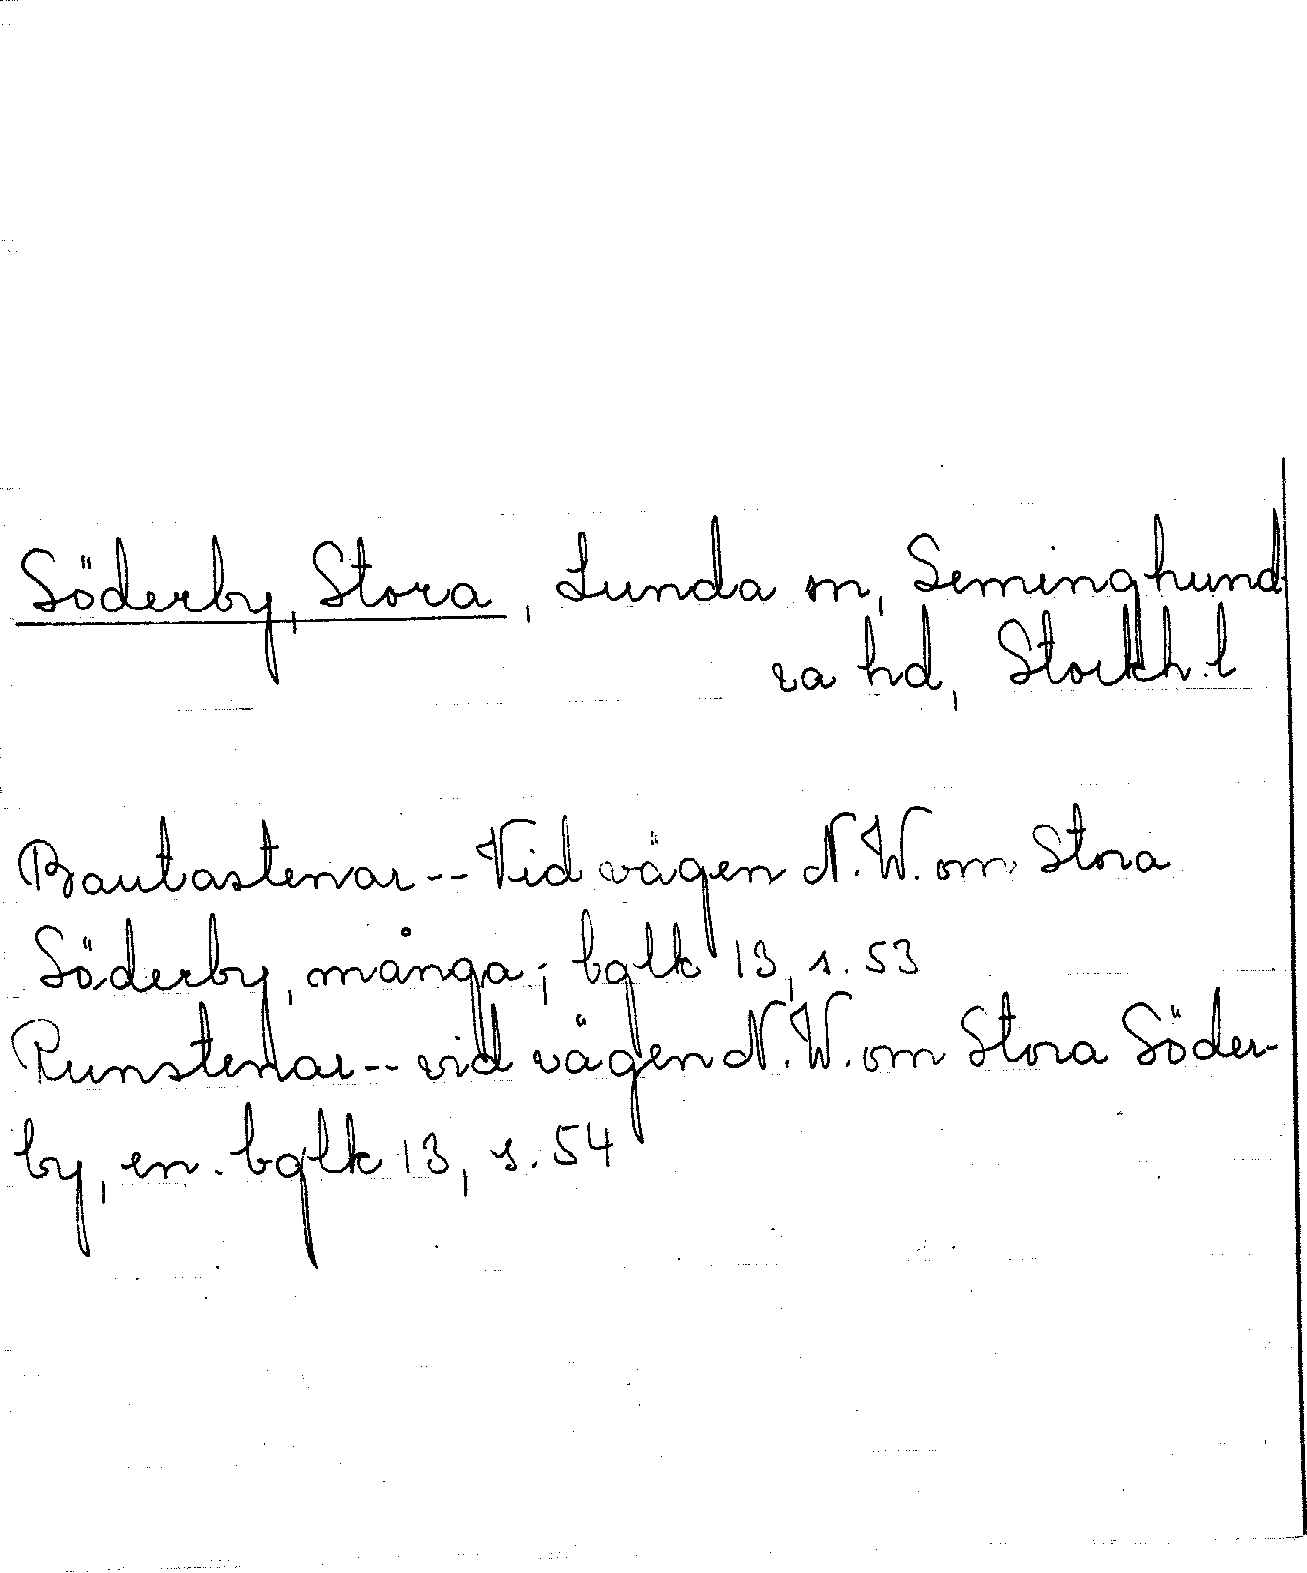 Söderby, Stora, Lunda sn, Seminghund
ra hd, Stockh. l
Bautastenar -- Vid vägen N.W. om Stora
Söderby, många; bglk 13, s. 53
Runstenar -- vid vägen N.W. om Stora Söder-
by, en. bglk 13, s. 54